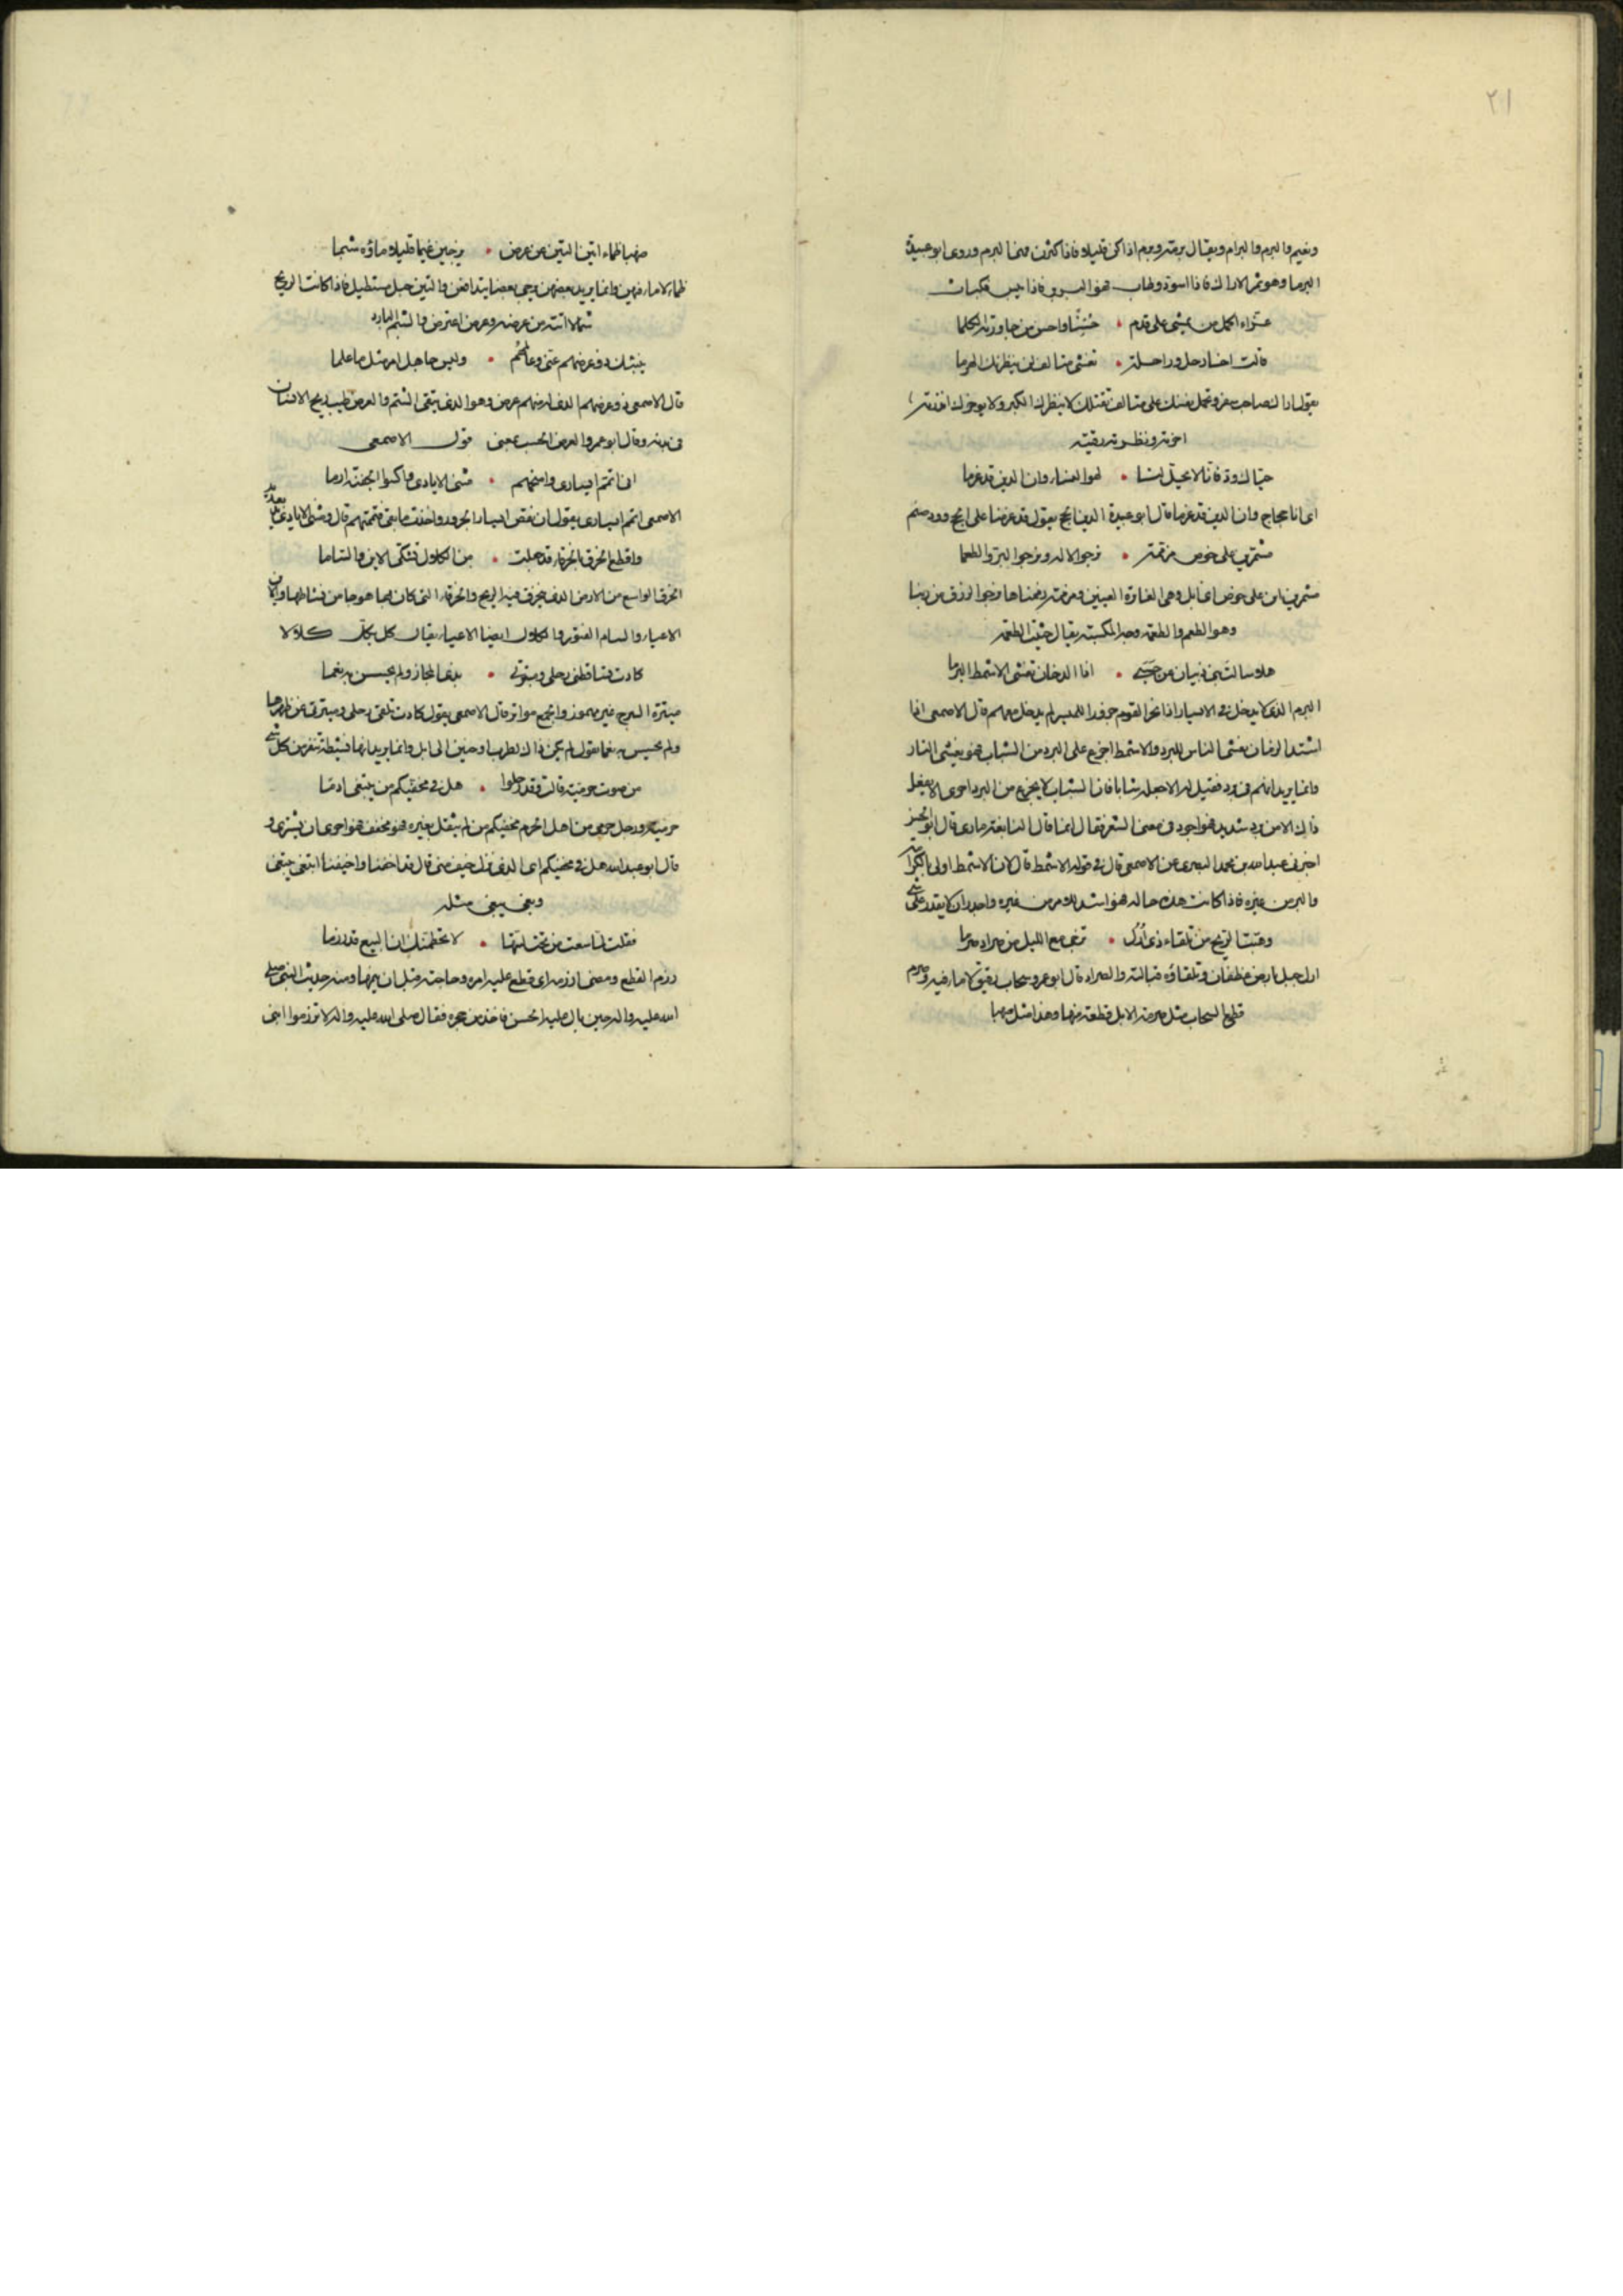 ٢١
ونعيم والبرم والبرام ويقال برمة وبرم اذا كن قليلا فاذا كثرن فهنا البرم وروى ابو عبيدة
البرما وهو ثمر الاراك فاذا اسود وطاب فهو البرير فاذا يبس فكباث
غراء اكمل من يمشى على قدم • حسنا واحسن من حاورته الكلما
قالت اخا رحل وراحلة • تغشى متالف لن ينظرنك الهرما
يقول اراك صاحب سفر وتحمل نفسك على متالف تقتلك لا ينظرك الكبر ولا يوخرك انظرته
اخرته ونظرته رقبته
حياك ود فانا لا يحل لنا • لهو النساء وان الدين قد عزما
اى انا حجاج وان الدين قد عزما قال ابو عبيدة الدين الحج يقول قد عزمنا على الحج وود صنم
مشمرين على خوص مزممة • نرجو الاله ونرجو البر والطعما
مشمرين على خوص اى ابل وهى الغائرة العيون ومزممة زممناها ونرجو الرزق من ربنا
وهو الطعم والطعمة وجه المكسبة يقال خبيث الطعمة
هلا سالت بنى ذبيان عن حسبى • اذا الدخان تغشى الاشمط البرما
البرم الذى لا يدخل فى الايسار اذا نحر القوم جزورا للميسر لم يدخل معهم قال الاصمعى اذا
اشتد الزمان يغشى الناس للبرد والاشمط اجزع على البرد من الشباب فهو يغشى النار
وانما يريد انهم فى برد فقيل له الاجعله شابا فان الشباب لا يجزع من البرد احرى الا يفعل
ذلك الا من برد شديد فهو اجود فى معنى الشعر فقال انما قال النابغة
اخبرنى عبد الله بن محمد البصرى عن الاصمعى قال فى قوله الاشمط قال لان الاشمط اولى
والبر من غيره فاذا كانت هذه حاله فهو اشد للامر من غيره واجدر ان لا يقدر على شئ
وهبت الريح من تلقاء ذى ارل • تزجى مع الليل من صرادها صرما
ارل جبل بارض غطفان وتلقاؤه قبالته والصراد قال ابو عمرو سحاب رقيق لا ماء فيه وصرم
قطع السحاب مثل صرمة الابل قطعة منها وهذا مثل صهبا
صهبا ظماء اتين التين عن عرض • يزجين غيما قليلا ماؤه شبما
ظماء لا ماء فيهن وانما يريد بعضهن يزجى بعضا والتين جبل مستطيل فاذا كانت الريح
شمالا اتته من عرضه وعرض اعترض والشبم البارد
ينبئك ذو عرضهم عنى وعالمهم • وليس جاهل امر مثل من علما
قال الاصمعى ذو عرضهم الذى له منهم عرض وهو الذى يتقى الشتم والعرض طيب ريح الانسان
فى بدنه وقال ابو عمرو العرض الحسب بمعنى قول الاصمعى
انى اتمم ايسارى وامنحهم • مثنى الايادى واكسو الجفنة الادما
الاصمعى اتمم ايسارى يقول ان نقص ايسار الجزور واخذت ما بقى فتممتهم قال ومثنى الايادى
واقطع الخرق بالخرقاء قد جعلت • من الكلال تشكى الاين والساما
الخرق الواسع من الارض الذى يتخرق فيه الريح والخرقاء التى كان بها هوجا من نشاطها والاين
الاعياء والسام الفتور والكلال ايضا الاعياء يقال كل يكل كلالا
كادت تساقطنى رحلى وميثرتى • بذى المجاز ولم تحسس به نعما
ميثرة السرج غير مهموز والجمع مواثر قال الاصمعى يقول كادت تلقى رحلى وميثرتى عن ظهرها
ولم تحسس به نعما يقول لم يكن ذلك لطربها وحنين الى ابل وانما يريد انها نشيطة تنفر من كل شئ
من صوت حرمية قالت وقد رحلوا • هل فى مخفيكم من يبتغى ادما
حرمية ورجل حرمى من اهل الحرم مخفيكم من لم يثقل بعيره فهو مخفف فهو احرى ان يشترى
قال ابو عبد الله هل فى مخيفكم اى الذى نزل خيف منى قال قد اخفنا واخيفنا ابتغى يبتغى
وبغى يبغى مثله
فقلت لما سعت من تحت لبتها • لا تحطمنك ان البيع قد زرما
زرم القطع ومضى ازرمه اى قطع عليه امره وحاجته قبل ان يتمها ومنه حديث النبى صلى
الله عليه واله حين بال عليه الحسن فاخذ من حجره فقال صلى الله عليه واله لا تزرموا ابنى